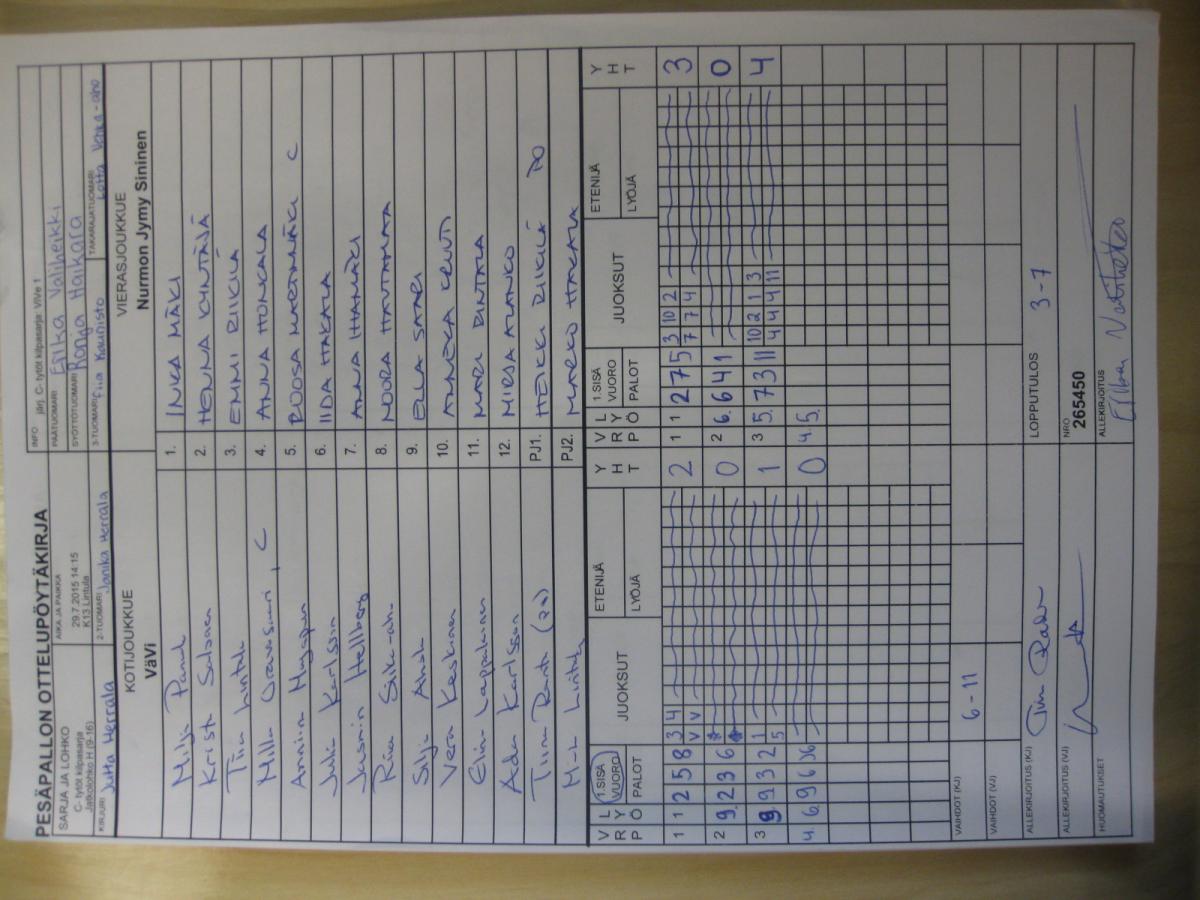 PESÄPALLON OTTELUPÖYTÄKIRJA
INFO järj. C- tytöt kilpasarja: ViVe 1
SARJA JA LOHKO
C- tytöt kilpasarja
Jatkolohko H (9-16)
AIKA JA PAIKKA
29.7.2015 14:15
K13 Lintula
PÄÄTUOMARI Erika Väliheikki
SYÖTTÖTUOMARI Ronja Haikara
KIRJURI Jutta Herrala
2-TUOMARI Janika Herrala
3-TUOMARI Fiia Kaunisto
TAKARAJATUOMARI Lotta
KOTIJOUKKUE
VäVi
VIERASJOUKKUE
Nurmon Jymy Sininen
Milja 1. INKA MÄKI
Kristi Salonen 2. HENNA KYNTÄJÄ
Tiia Lintala 3. EMMI RIIKILÄ
Milla C 4. ANNA HONKALA
Anniin 5. ROOSA MARTINMÄKI C
Julia Karlsson 6. IIDA HAKALA
Jasmin Hellberg 7. ANNA IHAMÄKI
Riia 8. NOORA HAUTAMAA
Silja 9. ELLA SAARI
Vera Keskinen 10.
Elin Lappalainen 11. MARI RINTALA
Ada Karlsson 12. MIRSA ALANKO
Tiina PJ1. HEIKKI RIIKILÄ PO
M-L PJ2. MARKO HAKALA
V R L Y P Ö 1.SISÄ VUORO PALOT JUOKSUT ETENIJÄ LYÖJÄ Y H T
V R L Y P Ö 1.SISÄ VUORO PALOT JUOKSUT ETENIJÄ LYÖJÄ Y H T
1 1 2 5 8 3 4 2 1 1 2 7 5 3 10 2 3
V V 7 7 4
2 9. 2 3 6 0 2 6. 6 4 1 0
3 9. 9 3 2 1 1 3 5. 7 3 11 10 2 1 3 4
5 4 4 4 11
4. 6. 9 6 0 4. 5.
VAIHDOT (KJ) 6 - 11
VAIHDOT (VJ)
ALLEKIRJOITUS (KJ)
LOPPUTULOS 3 - 7
ALLEKIRJOITUS (VJ)
NRO
265450
HUOMAUTUKSET
ALLEKIRJOITUS